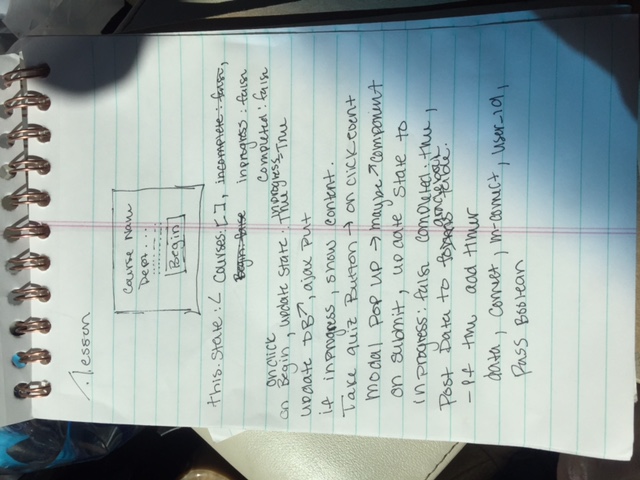 /.lesson
Course Name
Dept...
Begin
this.state: { courses: [ ], incomplete: false,
Begin: false inprogress: false
completed: false
onclick
on Begin, update state. inprogress = True
update DB↗, ajax put
if inprogress, show content.
Take quiz Button → on click event
modal Pop up → maybe ↗component
on submit, update state to
inprogress: false completed: true,
Post Data to gradebook table.
- If time add timer
data, correct, in-correct, user_id,
Pass Boolean